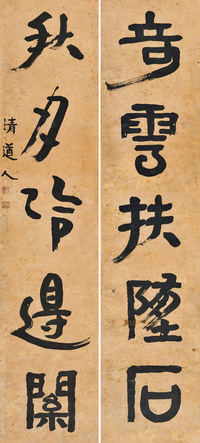 奇雲扶墜石
秋月冷邊關
清道人